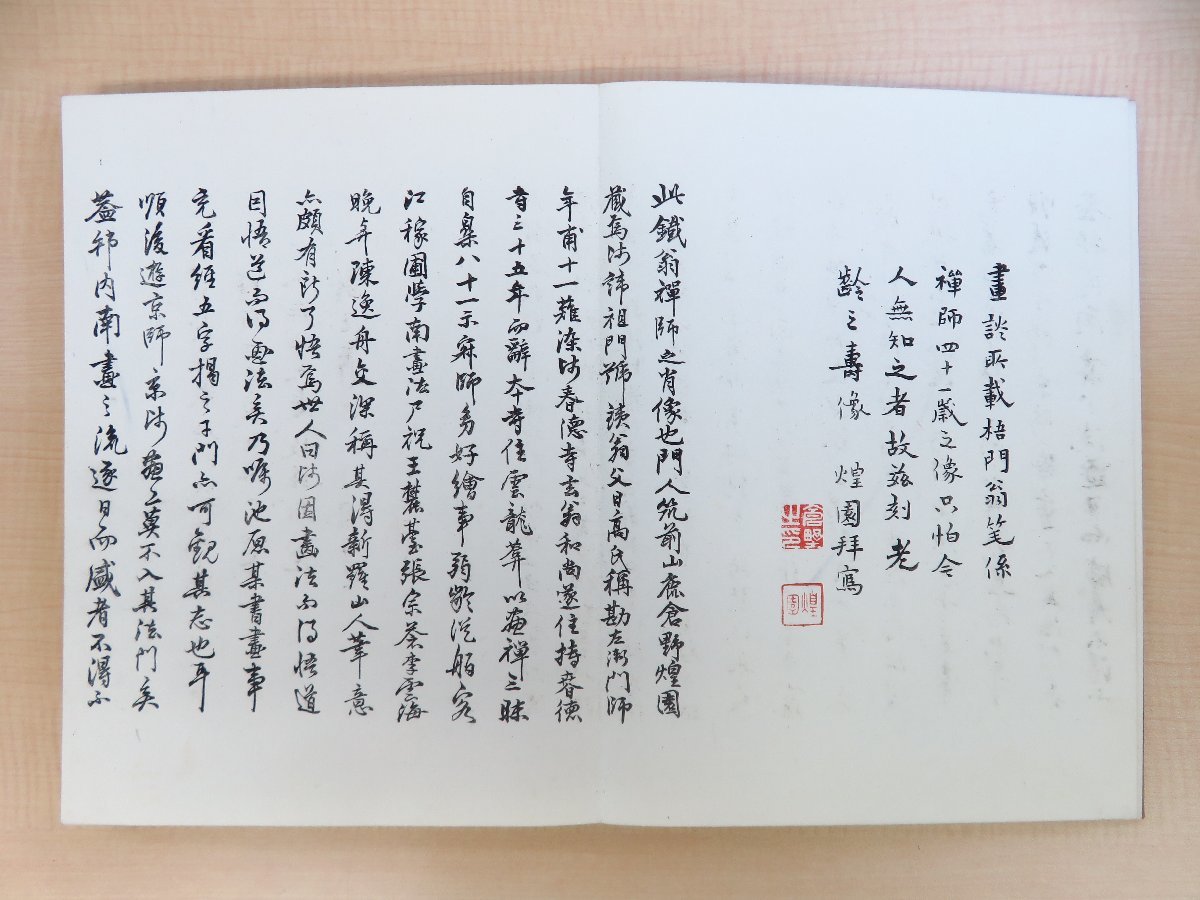 畫談所載梧門翁笔係
禪師四十一歳之像只怕令
人無知之者故茲刻老
齡之壽像 煌園拜寫
煌園
此鐵翁禪師之肖像也門人筑前山鹿倉野煌園
藏焉師諱祖門號鉄翁父日高氏稱勘左衛門師
年甫十一薙染師春德寺玄翁和尚遂住持春德
者三十五年而辭本寺住雲龍莽以畫禪三昧
自樂八十一示寂師多好繪事弱齡從舶客
江稼圃學南畫法尸祝王麓臺張宗蒼李雲海
晚年陳逸舟交深稱其得新羅山人筆意
亦頗有所了悟焉世人曰師因畫法而得悟道
因悟道而得畫法矣乃嘱池原某書畫事
完看經五字揭之于門亦可觀其志也耳
順後遊京師京師畫史莫不入其法門矣
蓋邦内南畫之流逐日而盛者不得不